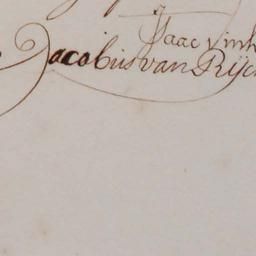 Isaac Vink
Jacobus van Rijck